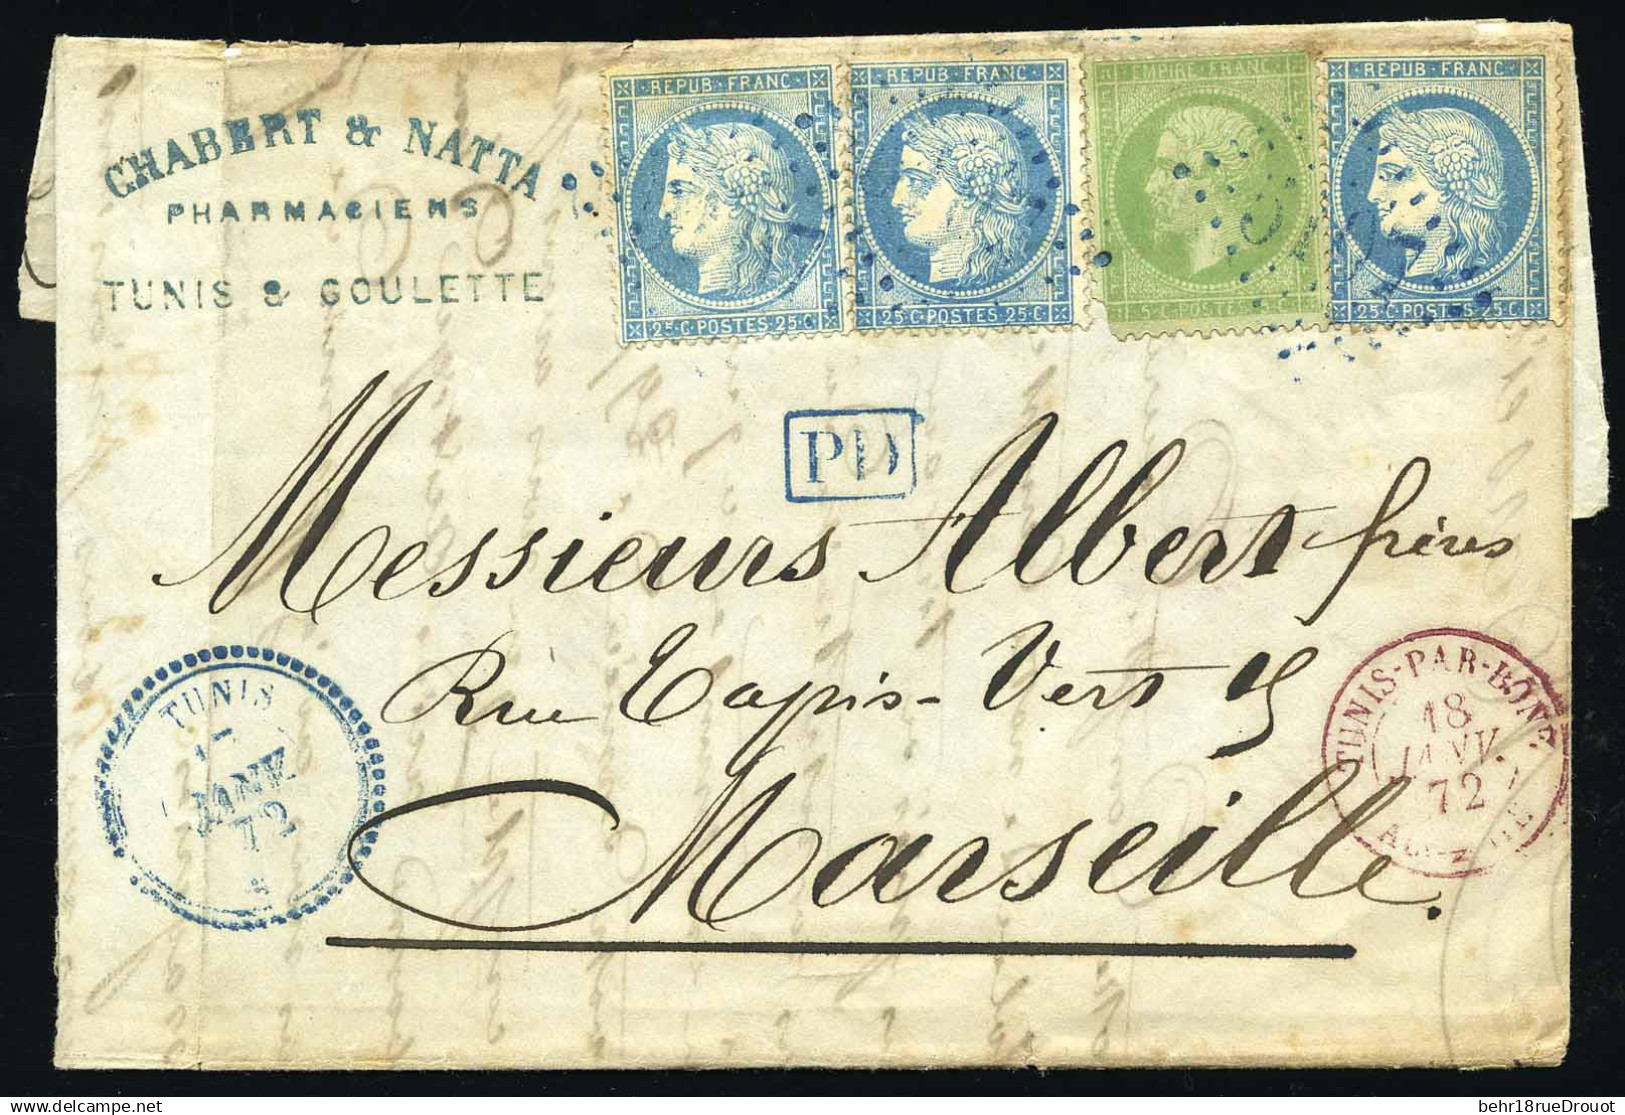 CHABERT & NATTA
PHARMACIENS
TUNIS & GOULETTE
REPUB · FRANC
25 · C · POSTES · 25 · C
REPUB · FRANC
25 · C · POSTES · 25 · C
EMPIRE · FRANC
5 · C · POSTES
REPUB · FRANC
25 · C · POSTES · 25 · C
PD
Messieurs Albert frères
Rue Tapis-Vert
Marseille.
TUNIS
JANV
72
TUNIS-PAR-BONE
18
JANV.
72
ALGERIE
behr18rueDrouot